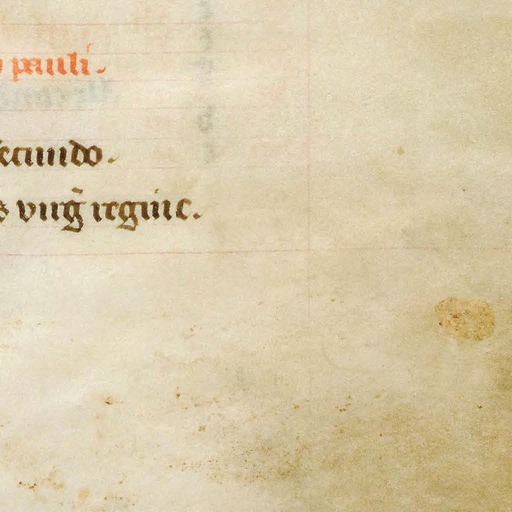 pauli.
secundo.
s virg̃ regine.